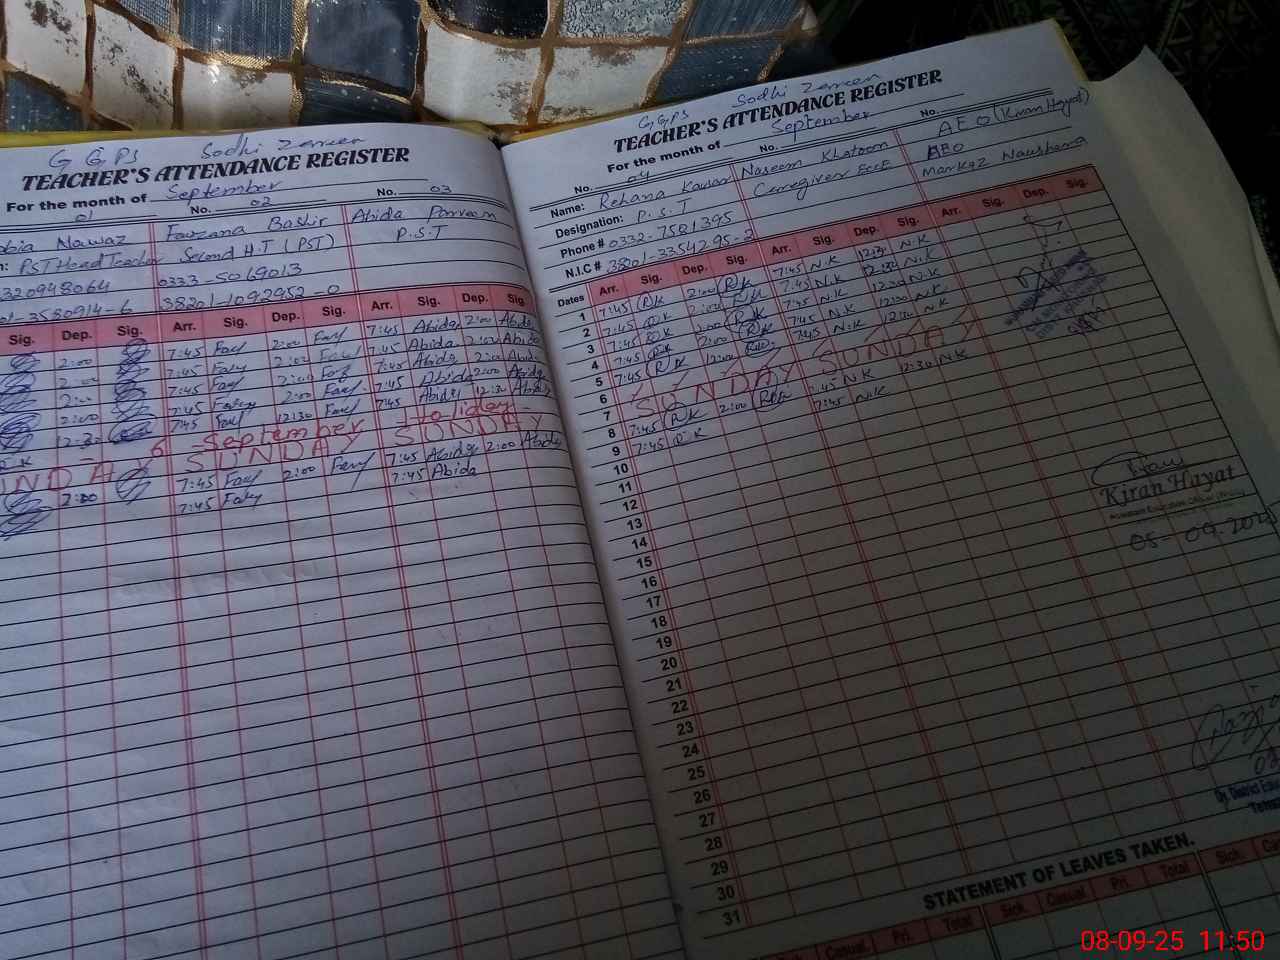 GGPS Sodhi Zereen
TEACHER'S ATTENDANCE REGISTER
For the month of September
01 No. 02 No. 03
obia Nawaz Fauzana Bashir Abida Parveen
n: PST Head Teacher Second H.T (PST) P.S.T
3320948064 0333-5019013
01-3580914-6 38201-1092952-0
Sig. Dep. Sig. Arr. Sig. Dep. Sig. Arr. Sig. Dep. Sig.
2:00 7:45 2:00 7:45 Abida 2:00 Abida
2:00 7:45 2:00 7:45 Abida 2:00 Abida
2:00 7:45 2:00 7:45 Abida 2:00 Abida
2:00 7:45 2:00 7:45 Abida 2:00 Abida
12:30 7:45 12:30 7:45 Abida 12:30 Abida
6 September holiday
NDAY SUNDAY SUNDAY
2:00 7:45 2:00 7:45 Abida 2:00 Abida
7:45 7:45 Abida
GGPS Sodhi Zereen
TEACHER'S ATTENDANCE REGISTER
For the month of September
No. 04 No. No.
Name: Rehana Kausar Naseem Khatoon AEO (Kiran Hayat)
Designation: P.S.T Caregiver ECCE AEO
Phone # 0332-7581395 Markaz Naushera
N.I.C # 38201-3354295-2
Dates Arr. Sig. Dep. Sig. Arr. Sig. Dep. Sig. Arr. Sig. Dep. Sig.
1 7:45 RK 2:00 RK 7:45 N.K 12:30 N.K
2 7:45 RK 2:00 RK 7:45 N.K 12:30 N.K
3 7:45 RK 2:00 RK 7:45 N.K 12:30 N.K
4 7:45 RK 2:00 RK 7:45 N.K 12:30 N.K
5 7:45 RK 12:00 RK 7:45 N.K 12:30 N.K
6
7 SUNDAY SUNDAY
8 7:45 RK 2:00 RK 7:45 N.K 12:30 N.K
9 7:45 R.K 7:45 N.K
10
11
12
13
14
15
16
17
18
19
20
21
22
23
24
25
26
27
28
29
30
31
Kiran Hayat
05-09-2025
Dy. District Edu
STATEMENT OF LEAVES TAKEN.
Casual. Pri. Total Sick. Casual Pri. Total Sick. Cas
08-09-25 11:50